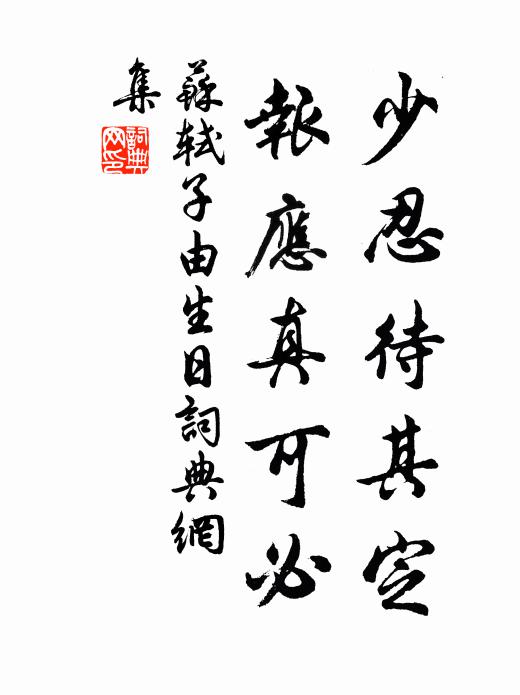 少忍待其定
報應真可必
蘇軾子由生日詞典網
集
詞典
网印